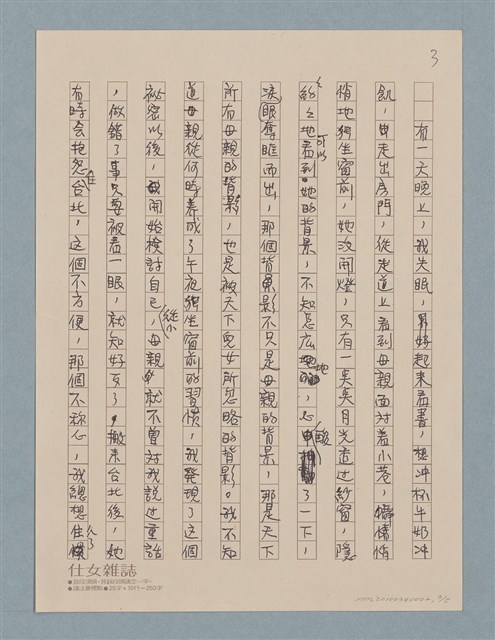 3
有一天晚上，我失眠，只好起來看書，想沖杯牛奶沖
飢，走出房門，從走道上看到母親面對著小巷，悄悄
悄地獨坐窗前，她沒開燈，只有一点点月光透过紗窗，隱
約約地可以看到她的背景，不知怎麼地，心酸了一下，
淚眼奪眶而出，那個背影不只是母親的背景，那是天下
所有母親的背影，也是被天下兒女所忽略的背影。我不知
道母親從何時養成了午夜獨坐窗前的習慣，我發現了這個
祕密以後，我開始檢討自己，從小母親就不曾對我說过重話
，做錯了事只要被看一眼，就知好歹了，搬來台北後，她
有時会抱怨住台北，這個不方便，那個不称心，我總想住久了
仕女雜誌